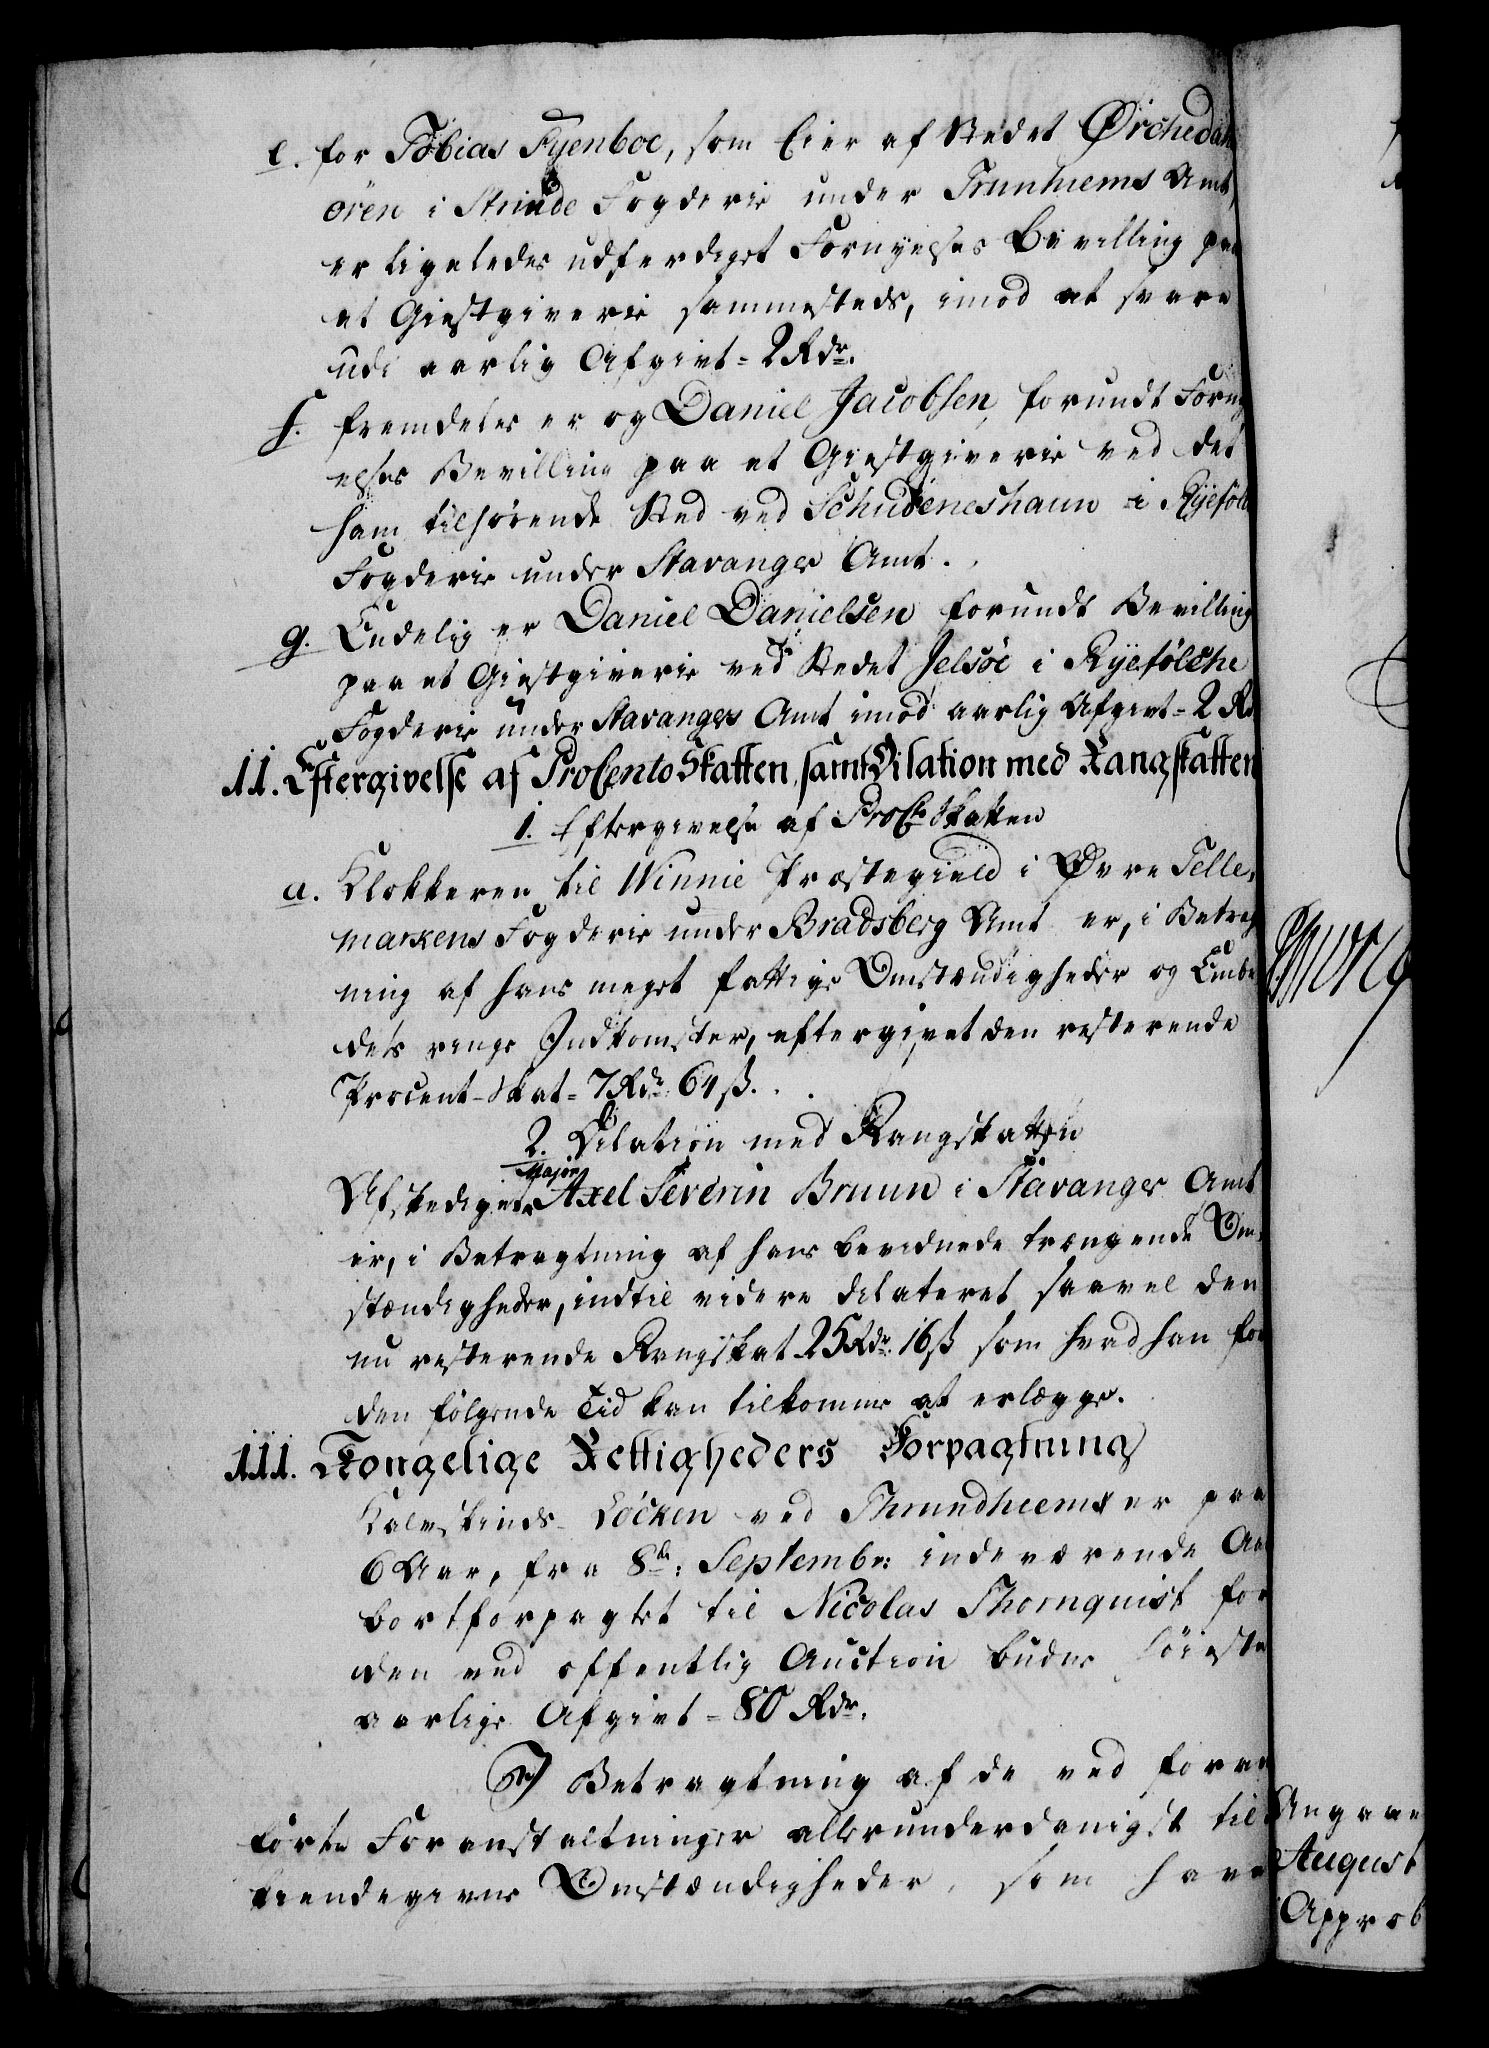 e. for Tobias Fyenboe, som Eier af Stedet Ørchedals
ören i Strinde Fogderie under Trunhiems Amt,
er ligeledes udferdiget Fornyelses Bevilling paa
et Giestgiverie sammesteds, imod at svare
udi aarlig Afgivt = 2 Rdr.
f. fremdeles er og Daniel Jacobsen forundt Forny
elses Bevilling paa et Giestgiverie ved det
ham tilhørende Sted ved Schudeneshaun i Ryefolk
Fogderie under Stavanger Amt.
g. Endelig er Daniel Danielsen forundt Bevilling
paa et Giestgiverie ved Stedet Jelsöe i Ryefölche
Fogderie under Stavangers Amt imod aarlig Afgivt = 2 Rd
II. Eftergivelse af ProCento Skatten, samt Dilation med Rangskatten
1. Eftergivelse af ProCto Skatten
a. Klokkeren til Winnie Præstegield i Øvre Telle,
markens Fogderie under Bradsberg Amt er, i Betragt
ning af hans meget fattige Omstændigheder og Embe
dets ringe Indkomster, eftergivet den resterende
Procent-Skat = 7 Rdr 64 ß.
2. Dilation med Rangskatten
Major
Afskediget Axel Severin Bruun i Stavanger Amt
er, i Betragtning af hans bevidnede trængende Om,
stændigheder, indtil videre dilateret saavel den
nu resterende Rangskat 25 Rdr. 16 ß som hvad han for
den følgende Tid kan tilkomme at erlægge.
III. Kongelige Rettigheders Forpagtning
Kalvskinds-Löcken ved Thrundhiems er paa
6 Aar, fra 8de: Septembr: indeværende Aar
bortforpagtet til Nicolas Thornquist for
den ved offentlig Auction budne høieste
aarlige Afgivt = 80 Rdr.
I Betragtning af de ved foran
førte Foranstaltninger allerunderdanigst til
kiendegivne Omstændigheder, som have
Angaae
August
Approb